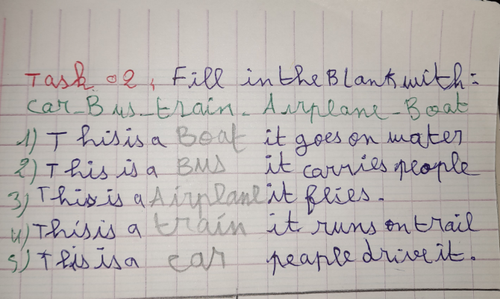 Task 02, Fill in the Blank with:
car_Bus_train_Airplane_Boat
1) This is a Boat it goes on water
2) This is a Bus it carries people
3) This is a Airplane it flies.
4) This is a train it runs on trail
5) This is a car peaple drive it.